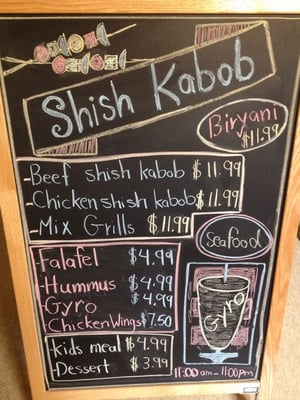 Shish Kabob
Biryani
$11.99
-Beef shish kabob $11.99
-Chicken shish kabob $11.99
-Mix Grills $11.99
Seafood
-Falafel $4.99
-Hummus $4.99
Gyro $4.99
-Chicken Wings $7.50
Gyro
-kids meal $4.99
-Dessert $3.99
11:00 am - 11:00 pm